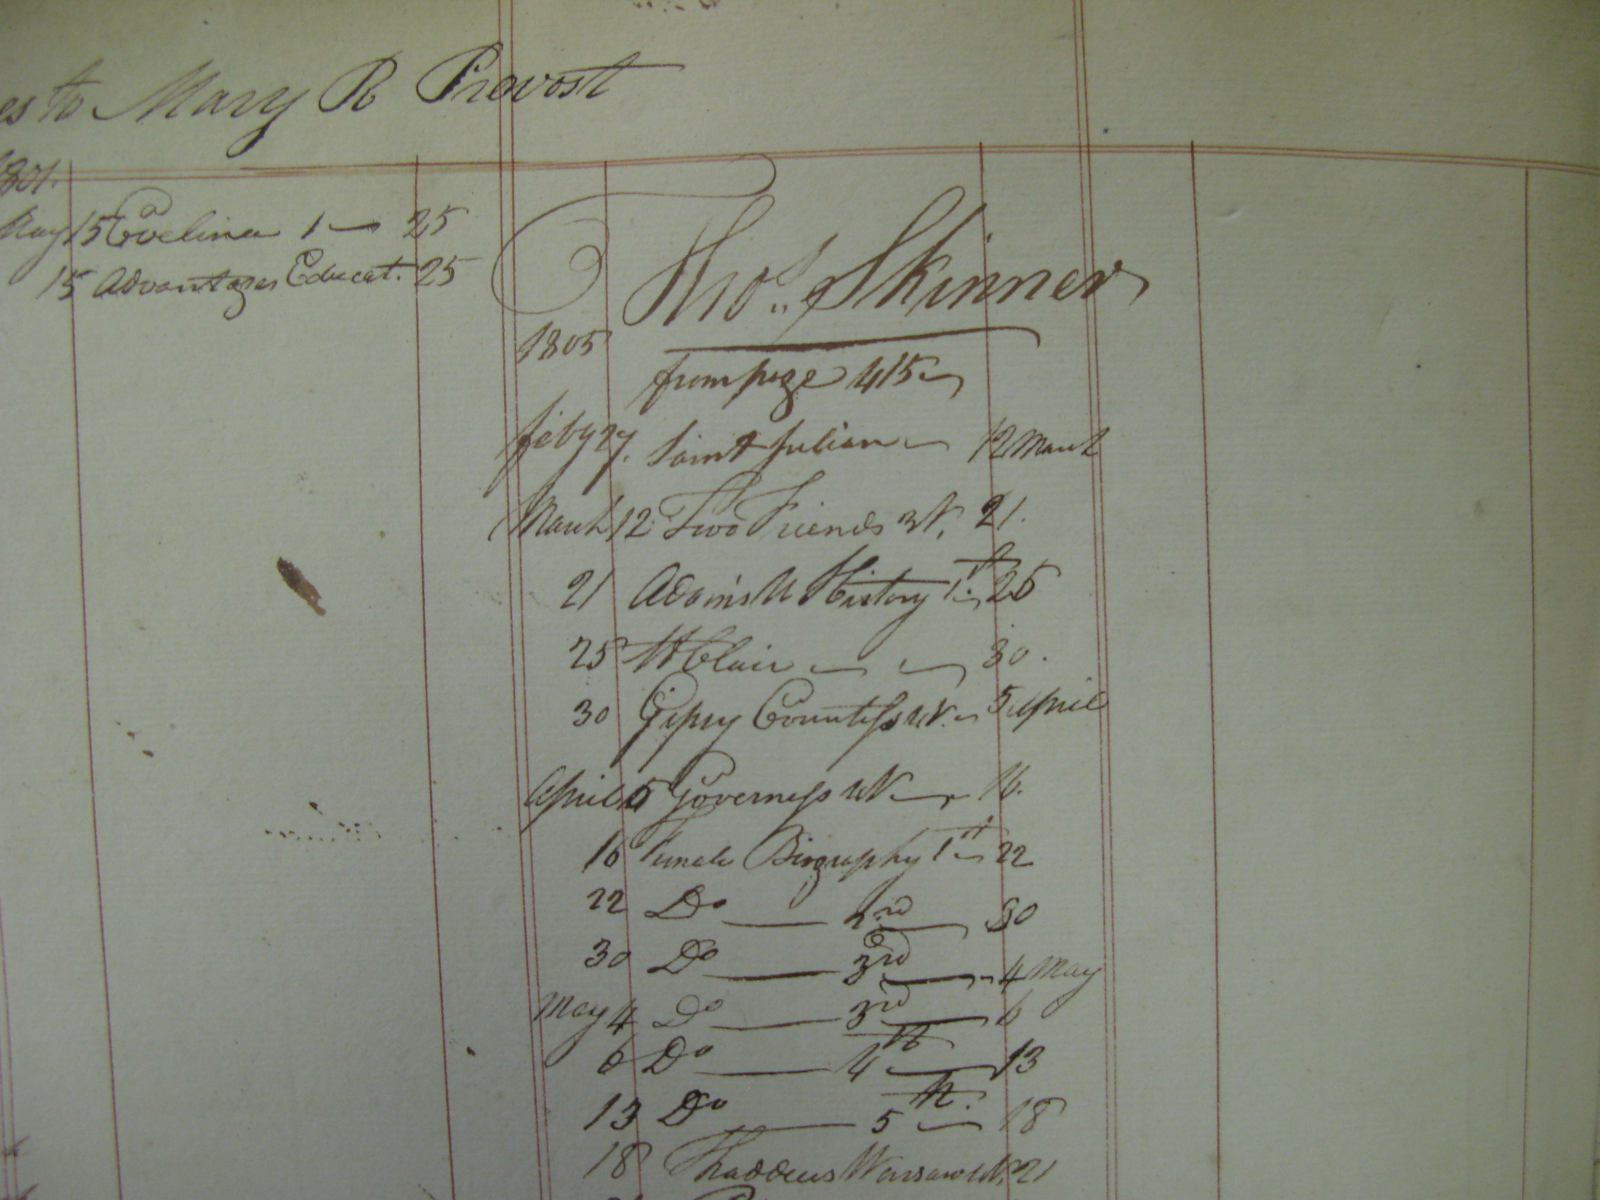 es to Mary R Provost
1801.
May 15 Evelina 1 — 25
15 Advantages Educat. 25
Thos. Skinner
1805
from page 415
Feby 27. Saint Julian — 12 March
March 12 Two Friends 21.
21 Adams U History 1st 25
25 St Clair — — 30.
30 Gipsy Countess 5 April
April 5 Governess 16.
16 Female Biography 1st 22
22 Do — 2nd — 30
30 Do — 3rd — 4 May
May 4 Do — 3rd — 6
6 Do — 4th — 13
13 Do — 5th. — 18
18 Thaddeus Warsaw 21